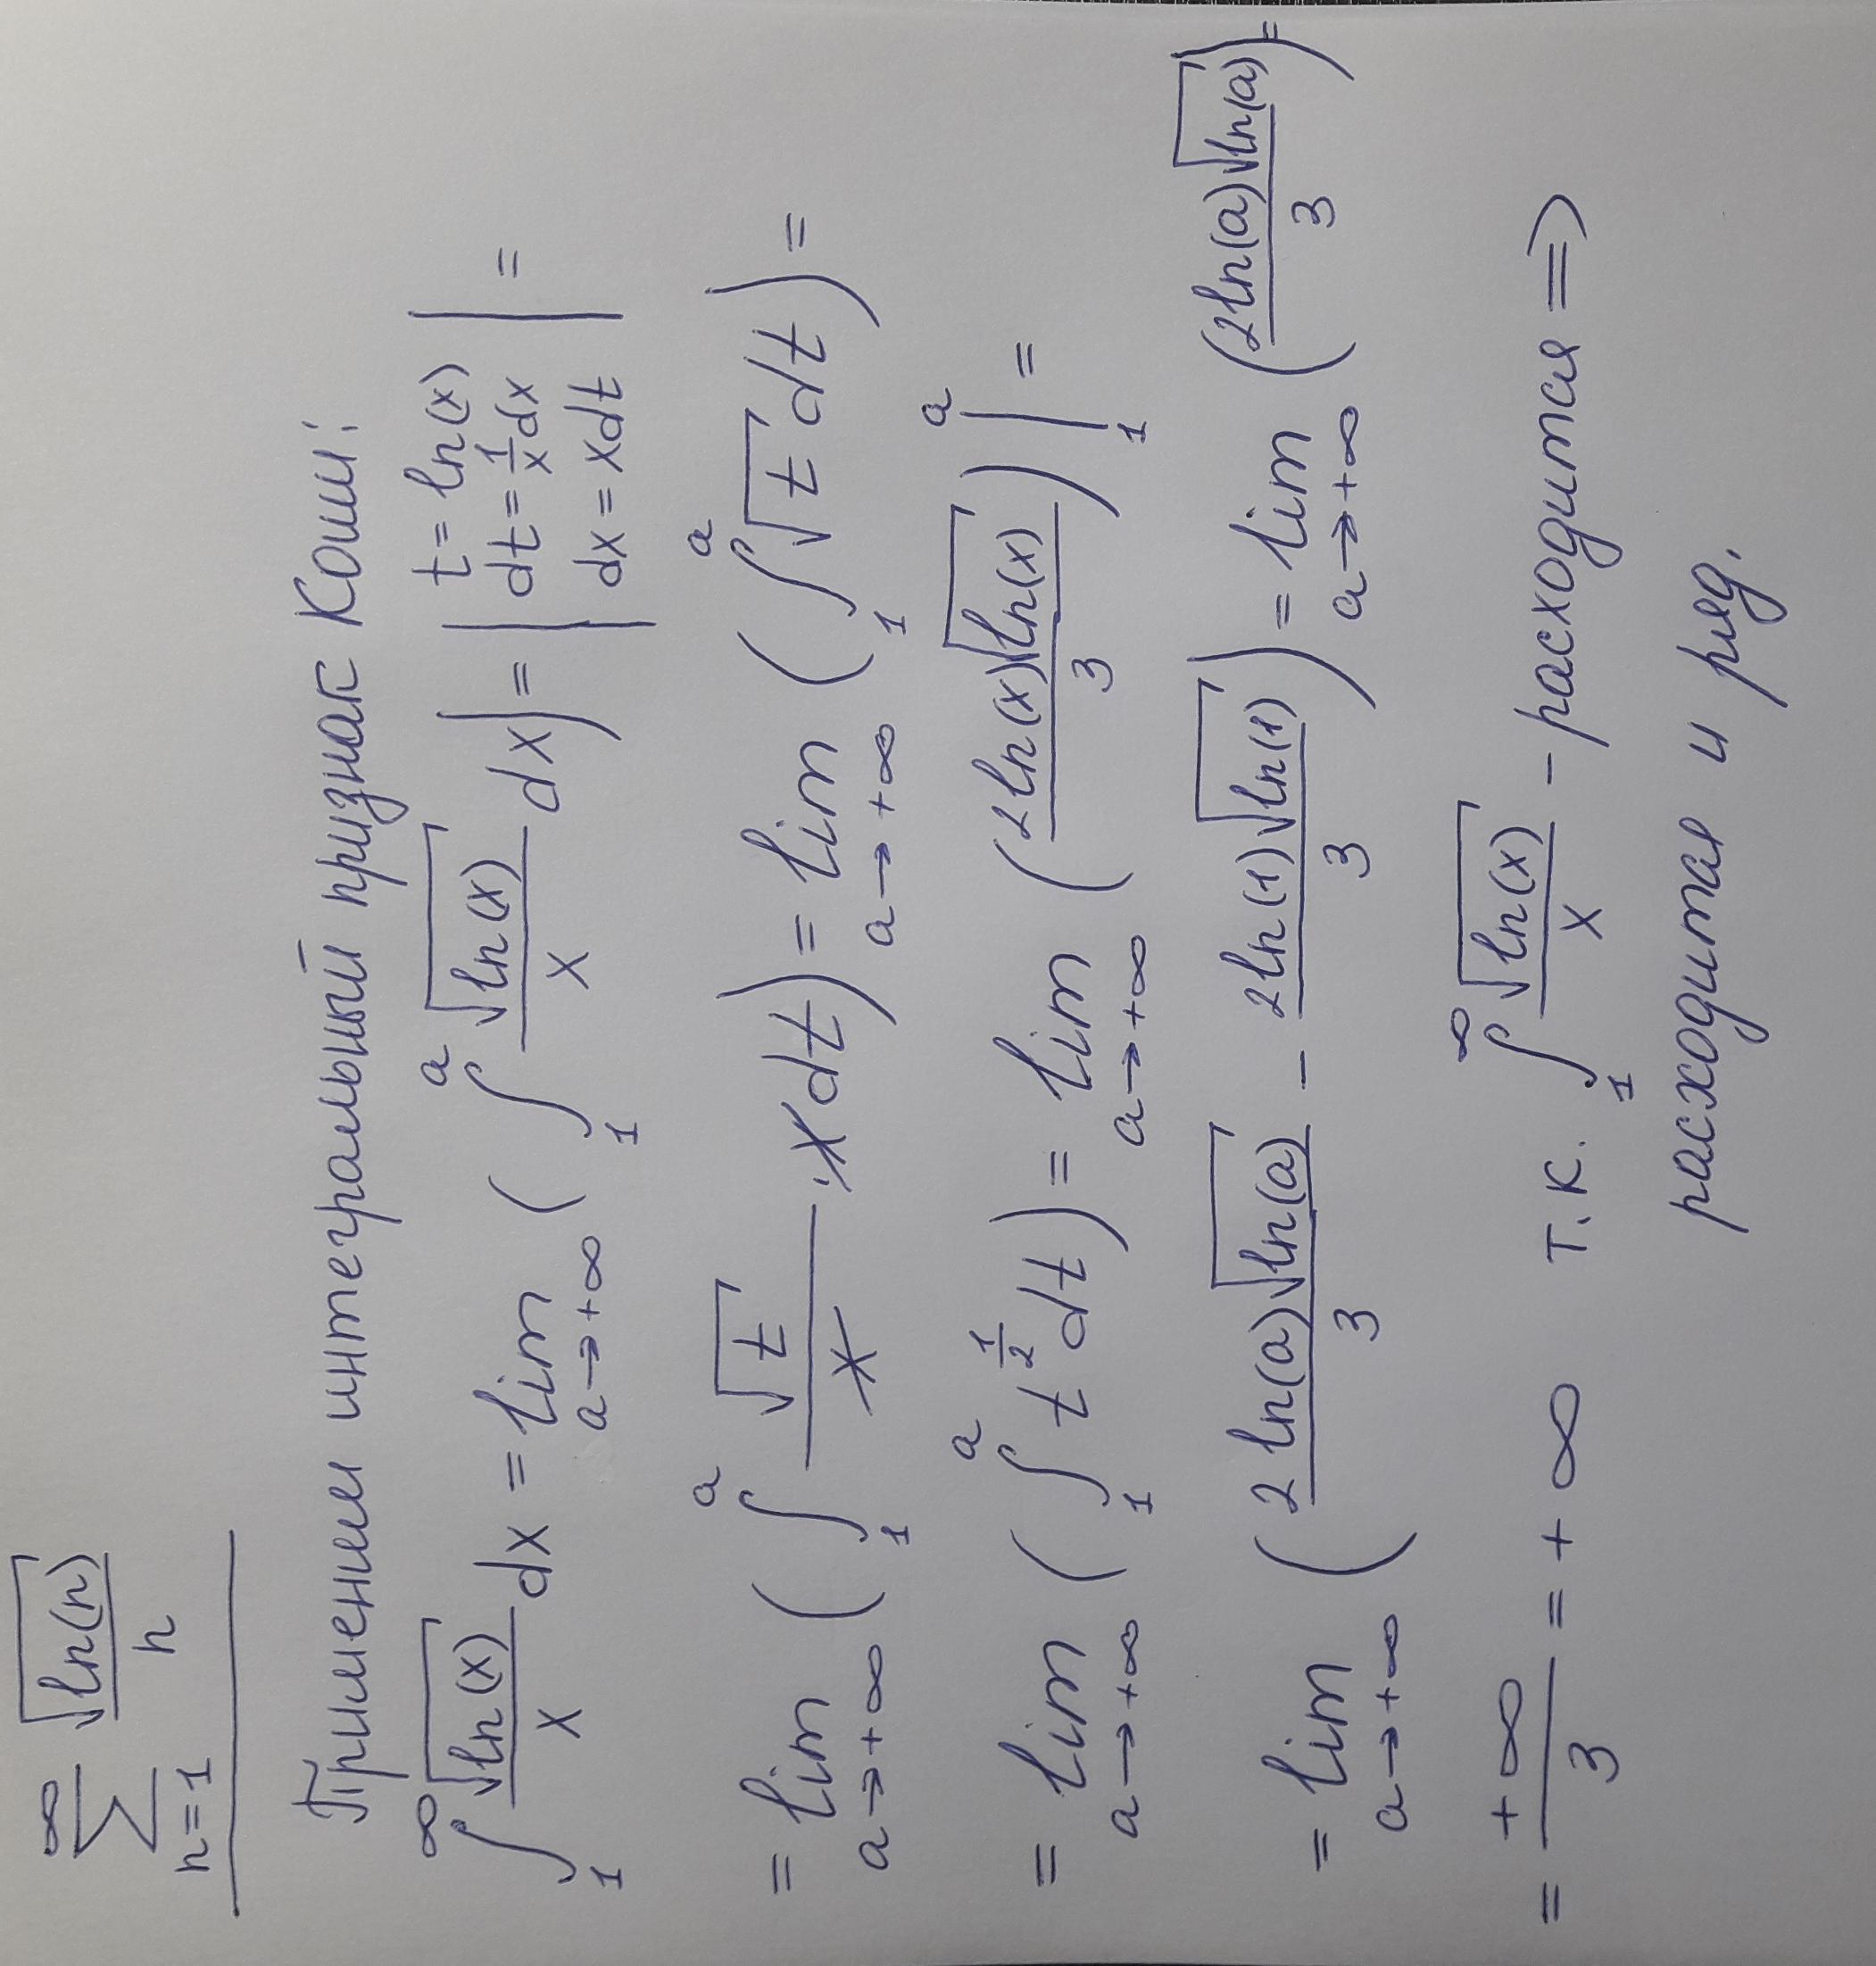 ∑_{n=1}^{∞} √(ln(n)) / n
Применим интегральный признак Коши:
∫_1^∞ √(ln(x))/x dx = lim_{a→+∞} (∫_1^a √(ln(x))/x dx) = | t = ln(x) dt = 1/x dx dx = xdt | =
= lim_{a→+∞} (∫_1^a √t/x · xdt) = lim_{a→+∞} (∫_1^a √t dt) =
= lim_{a→+∞} (∫_1^a t^{1/2} dt) = lim_{a→+∞} (2ln(x)√(ln(x))/3) |_1^a =
= lim_{a→+∞} (2ln(a)√(ln(a))/3 - 2ln(1)√(ln(1))/3) = lim_{a→+∞} (2ln(a)√(ln(a))/3) =
= +∞/3 = +∞ т.к. ∫_1^∞ √(ln(x))/x - расходится ⇒
расходится и ряд.